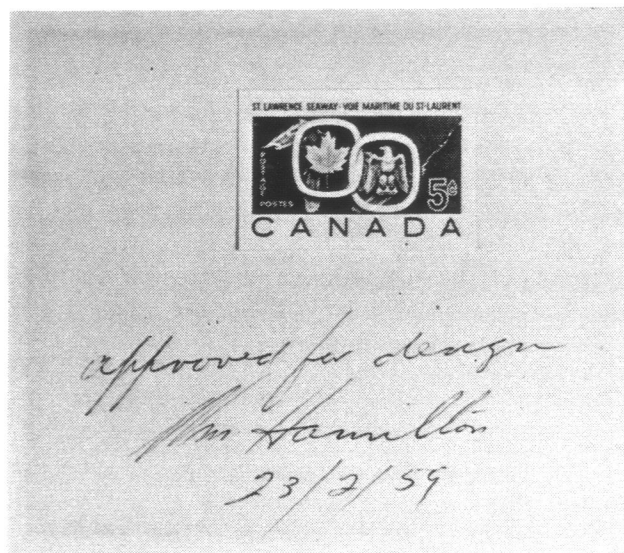 ST. LAWRENCE SEAWAY · VOIE MARITIME DU ST-LAURENT
POSTAGE
POSTES
5¢
CANADA
approved for design
Wm Hamilton
23/2/59